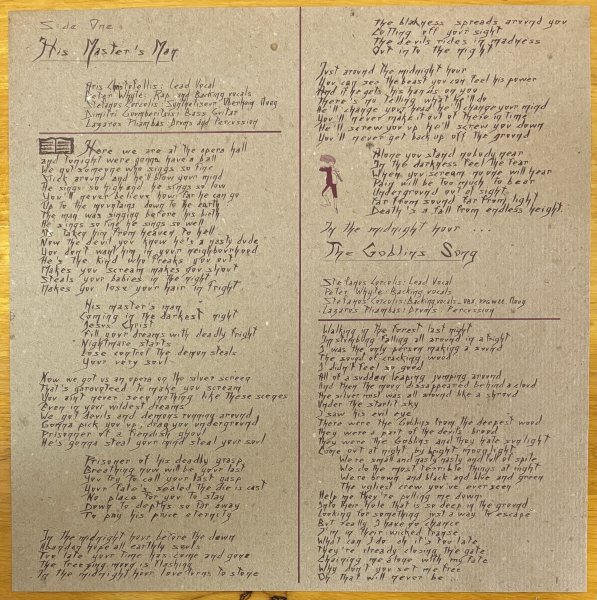 Side One
His Master's Man
Aris Christofellis: Lead Vocal
Peter Whyte: Rap and Backing vocals
Stefanos Corcolis: Synthetiseur Oberheim Moog
Dimitri Goumbertsis: Bass Guitar
Lagaros Miambas: Drums and Percussion
Here we are at the opera hall
and tonight were gonna have a ball
We got someone who sings so fine
Stick around and he'll blow your mind
He sings so high and he sings so low
You'll never believe how far he can go
Up to the mountains down to the earth
The man was singing before his birth
He sings so fine he sings so well
He takes him from heaven to hell
Now the devil you know he's a nasty dude
You don't want him in your neighbourhood
He's the kind who freaks you out
Makes you scream makes you shout
Steals your babies in the night
Makes you lose your hair in fright
His master's man
Coming in the darkest night
Jesus Christ
Fill your dreams with deadly fright
Nightmare starts
Lose control the demon steals
Your very soul
Now we got us an opera on the silver screen
That's garonteed to make you scream
You aint never seen nothing like these scenes
Even in your wildest dreams
We got devils and demons running around
Gonna pick you up, drag you underground
Prisoner of a fiendish ghoul
He's gonna steal your mind steal your soul
Prisoner of his deadly grasp
Breathing now will be your last
You try to call your last gasp
Your fate's sealed the die is cast
No place for you to stay
Down to depths so far away
To pay his price eternity
In the midnight hour before the dawn
Abandon hope all earthly souls
Too late your time has come and gone
The freezing moon is flashing
In the midnight hour love turns to stone
The blakness spreads around you
Cutting off your sight
The devils rides in madness
Out into the night
Just around the midnight hour
You can see the beast you can feel his power
And if he gets his hands on you
There's no telling what he'll do
He'll change your head he'll change your mind
You'll never make it out of there in time
He'll screw you up he'll screw you down
You'll never get back up off the ground
Alone you stand nobody near
In the darkness feel the fear
When you scream noone will hear
Pain will be too much to bear
Underground out of sight
Far from sound far from light
Death's a fall from endless height.
In the midnight hour ....
The Goblins Song
Stefanos Corcolis: Lead Vocal
Peter Whyte: Backing vocals
Stefanos Corcolis: Backing vocals. Moog
Lagaros Miambas: Drums. Percussion
Walking in the forest last night
I'm stumbling falling all around in a fright
I was the only person making a sound
The sound of cracking wood
I didn't feel so good
All of a sudden leaping jumping around
And then the moon disappeared behind a cloud
The silver mist was all around like a shroud
Under the starlit sky
I saw his evil eye
There were the Goblins from the deepest wood
They were a part of the devils brood
They were the Goblins and they hate sunlight
Come out at night by bright moonlight
We're small and nasty nasty and full of spite
We do the most terrible things at night
We're brown and black and blue and green
The ugliest crew you've ever seen
Help me they're pulling me down
Into their hole that is so deep in the ground
Looking for something just a way to escape
But really I have no chance
I'm in their wicked transe
What can I do oh it's too late
They're already closing the gate
Chaining me alone with my fate
Why don't you set me free
Oh that will never be ...